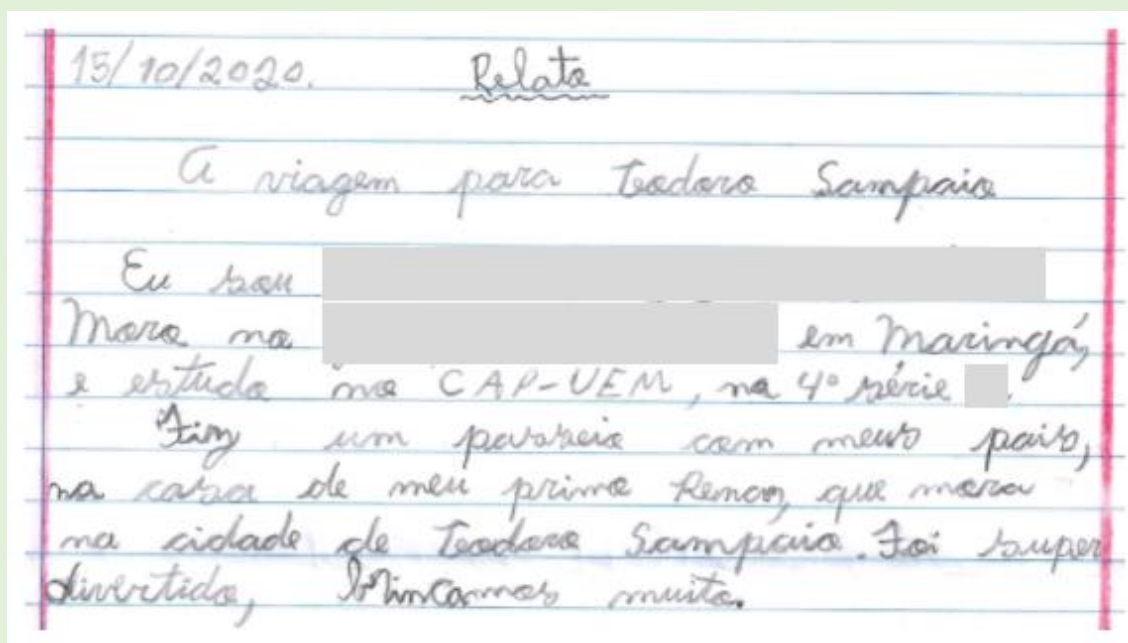 15/10/2020. Relato
A viagem para Teodoro Sampaio
Eu sou
Moro na em Maringá,
e estudo no CAP-UEM, na 4º série .
Fiz um passeio com meus pais,
na casa de meu primo Renan, que mora
na cidade de Teodoro Sampaio. Foi super
divertido, brincamos muito.